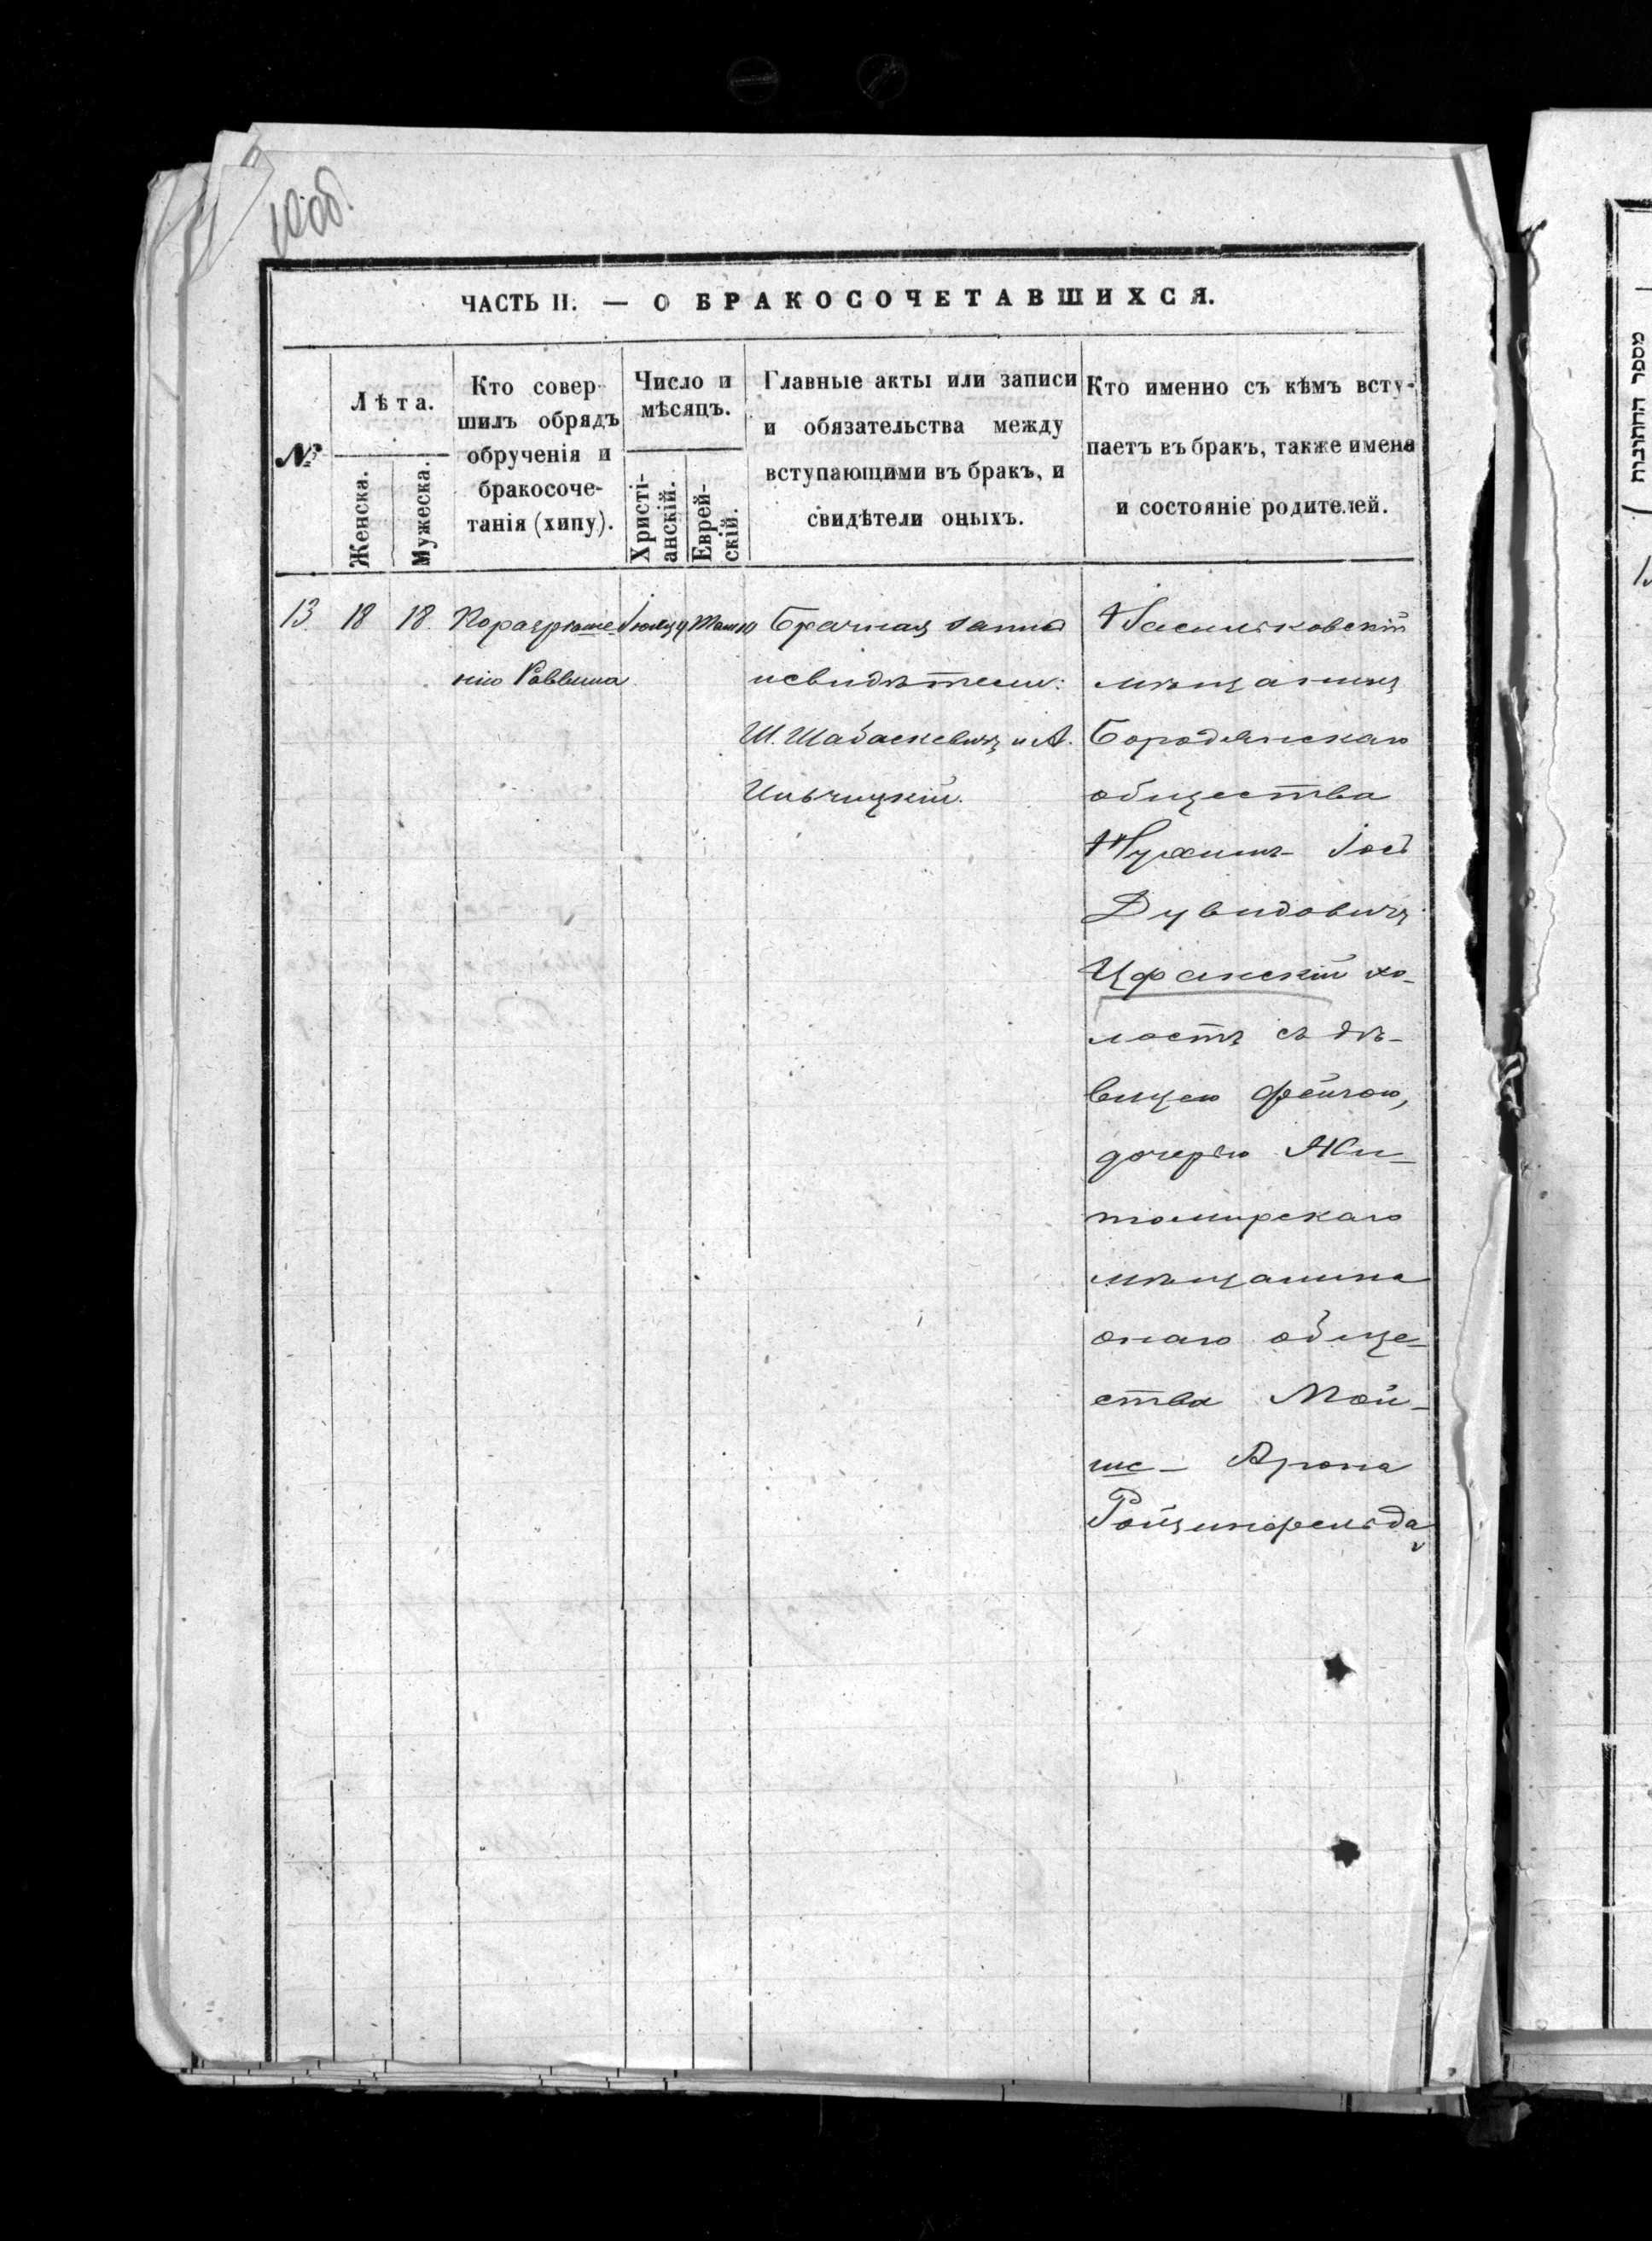 10об.
ЧАСТЬ II. — О БРАКОСОЧЕТАВШИХСЯ.
№
Лѣта.
Женска.
Мужеска.
Кто совер-
шилъ обрядъ
обрученія и
бракосоче-
танія (хипу).
Число и
мѣсяцъ.
Христі-
анскій.
Еврей-
скій.
Главные акты или записи
и обязательства между
вступающими въ бракъ, и
свидѣтели оныхъ.
Кто именно съ кѣмъ всту-
паетъ въ бракъ, также имена
и состояніе родителей.
13
18
18.
По разрѣше-
нію Раввина
Брачная запись
и свидѣтели:
Ш. Шабаскевичъ и А.
Васильковскій
мѣщанинъ
Бородянскаго
общества
Нухимъ- Іось
Дувидовичъ
Цфанскій хо-
лостъ съ дѣ-
вицею Фейгою,
дочерью Жи-
томирскаго
мѣщанина
онаго обще-
ства Мой-
ше- Арона
Ройзинфельда
מספר החתונות